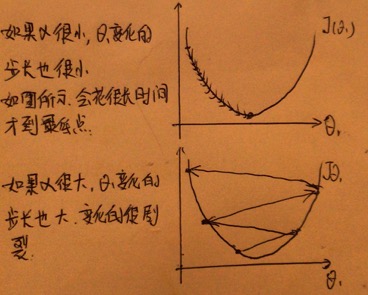 如果α很小,θ₁变化的
步长也很小
如图所示.会花很长时间
才到最低点.
J(θ₁)
θ₁
如果α很大,θ₁变化的
步长也大.变化的很剧
裂.
Jθ₁
θ₁